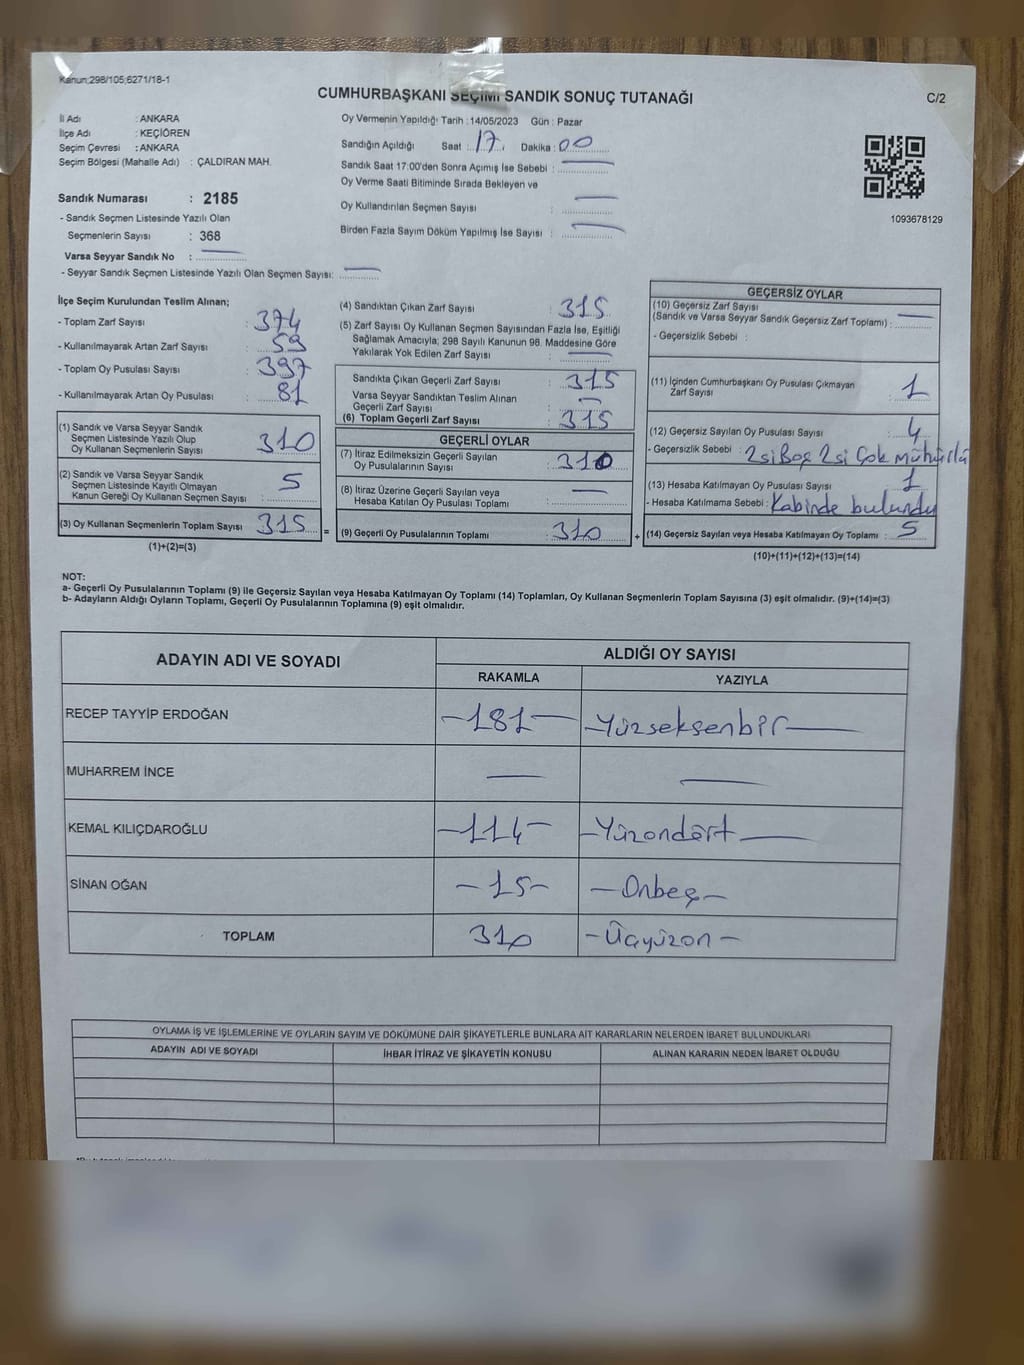 Kanun;298/105;6271/18-1
CUMHURBAŞKANI SEÇİMİ SANDIK SONUÇ TUTANAĞI
C/2
İl Adı : ANKARA
İlçe Adı : KEÇİÖREN
Seçim Çevresi : ANKARA
Seçim Bölgesi (Mahalle Adı) : ÇALDIRAN MAH.
Oy Vermenin Yapıldığı Tarih : 14/05/2023 Gün : Pazar
Sandığın Açıldığı Saat : 17 Dakika : 00
Sandık Saat 17:00'den Sonra Açımış İse Sebebi : —
Oy Verme Saati Bitiminde Sırada Bekleyen ve
Oy Kullandırılan Seçmen Sayısı : —
Birden Fazla Sayım Döküm Yapılmış İse Sayısı : —
1093678129
Sandık Numarası : 2185
- Sandık Seçmen Listesinde Yazılı Olan
Seçmenlerin Sayısı : 368
Varsa Seyyar Sandık No : —
- Seyyar Sandık Seçmen Listesinde Yazılı Olan Seçmen Sayısı: —
İlçe Seçim Kurulundan Teslim Alınan;
- Toplam Zarf Sayısı : 374
- Kullanılmayarak Artan Zarf Sayısı : 59
- Toplam Oy Pusulası Sayısı : 397
- Kullanılmayarak Artan Oy Pusulası : 81
(1) Sandık ve Varsa Seyyar Sandık
Seçmen Listesinde Yazılı Olup
Oy Kullanan Seçmenlerin Sayısı 310
(2) Sandık ve Varsa Seyyar Sandık
Seçmen Listesinde Kayıtlı Olmayan
Kanun Gereği Oy Kullanan Seçmen Sayısı : 5
(3) Oy Kullanan Seçmenlerin Toplam Sayısı 315 =
(1)+(2)=(3)
(4) Sandıktan Çıkan Zarf Sayısı : 315
(5) Zarf Sayısı Oy Kullanan Seçmen Sayısından Fazla İse, Eşitliği
Sağlamak Amacıyla; 298 Sayılı Kanunun 98. Maddesine Göre
Yakılarak Yok Edilen Zarf Sayısı : —
Sandıkta Çıkan Geçerli Zarf Sayısı : 315
Varsa Seyyar Sandıktan Teslim Alınan
Geçerli Zarf Sayısı : —
(6) Toplam Geçerli Zarf Sayısı : 315
GEÇERLİ OYLAR
(7) İtiraz Edilmeksizin Geçerli Sayılan
Oy Pusulalarının Sayısı : 310
(8) İtiraz Üzerine Geçerli Sayılan veya
Hesaba Katılan Oy Pusulası Toplamı : —
(9) Geçerli Oy Pusulalarının Toplamı : 310 +
GEÇERSİZ OYLAR
(10) Geçersiz Zarf Sayısı
(Sandık ve Varsa Seyyar Sandık Geçersiz Zarf Toplamı) : —
- Geçersizlik Sebebi :
(11) İçinden Cumhurbaşkanı Oy Pusulası Çıkmayan
Zarf Sayısı : 1
(12) Geçersiz Sayılan Oy Pusulası Sayısı : 4
- Geçersizlik Sebebi : 2si Boş 2si Çok mühürlü
(13) Hesaba Katılmayan Oy Pusulası Sayısı : 1
- Hesaba Katılmama Sebebi : Kabinde bulundu
(14) Geçersiz Sayılan veya Hesaba Katılmayan Oy Toplamı : 5
(10)+(11)+(12)+(13)=(14)
NOT:
a- Geçerli Oy Pusulalarının Toplamı (9) ile Geçersiz Sayılan veya Hesaba Katılmayan Oy Toplamı (14) Toplamları, Oy Kullanan Seçmenlerin Toplam Sayısına (3) eşit olmalıdır. (9)+(14)=(3)
b- Adayların Aldığı Oyların Toplamı, Geçerli Oy Pusulalarının Toplamına (9) eşit olmalıdır.
ADAYIN ADI VE SOYADI
ALDIĞI OY SAYISI
RAKAMLA YAZIYLA
RECEP TAYYİP ERDOĞAN -181- -Yüzseksenbir-
MUHARREM İNCE — —
KEMAL KILIÇDAROĞLU -114- -Yüzondört-
SİNAN OĞAN -15- -Onbeş-
TOPLAM 310 -Üçyüzon-
OYLAMA İŞ VE İŞLEMLERİNE VE OYLARIN SAYIM VE DÖKÜMÜNE DAİR ŞİKAYETLERLE BUNLARA AİT KARARLARIN NELERDEN İBARET BULUNDUKLARI
ADAYIN ADI VE SOYADI İHBAR İTİRAZ VE ŞİKAYETİN KONUSU ALINAN KARARIN NEDEN İBARET OLDUĞU